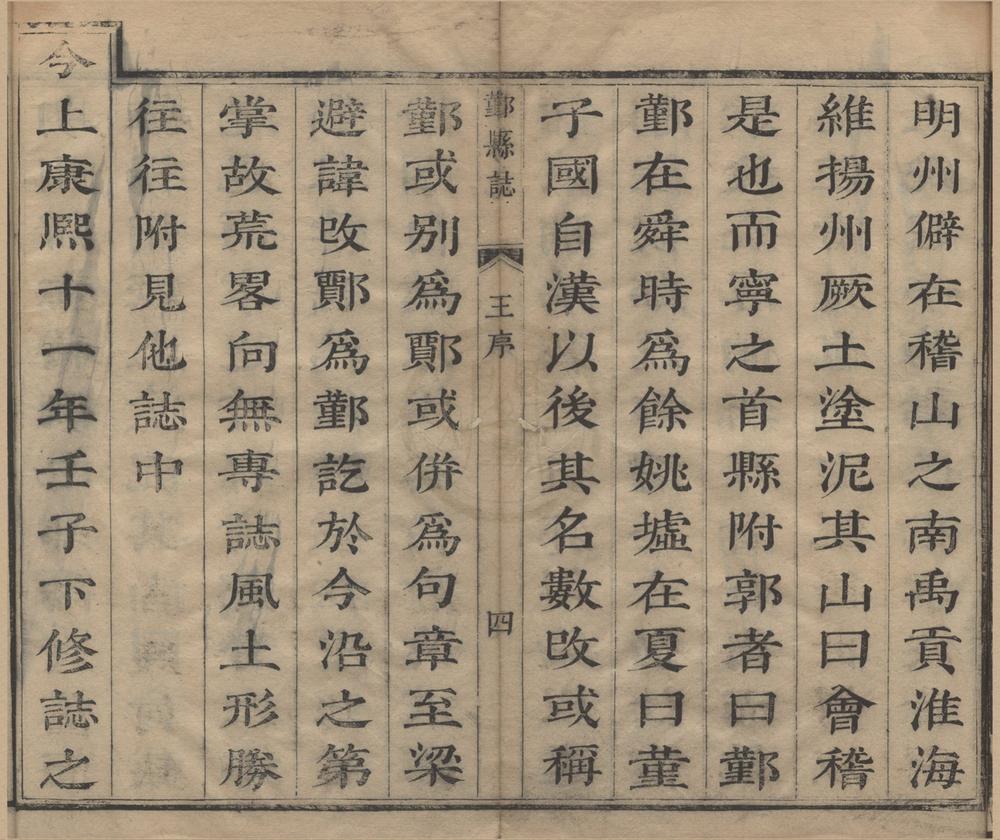 明州僻在稽山之南禹貢淮海
維揚州厥土塗泥其山曰會稽
是也而寧之首縣附郭者曰鄞
鄞在舜時爲餘姚墟在夏曰堇
子國自漢以後其名數改或稱
鄞縣誌 王序 四
鄞或别爲鄮或併爲句章至梁
避諱改鄮爲鄞訖於今沿之第
掌故荒畧向無專誌風土形勝
往往附見他誌中
今上康熙十一年壬子下修誌之